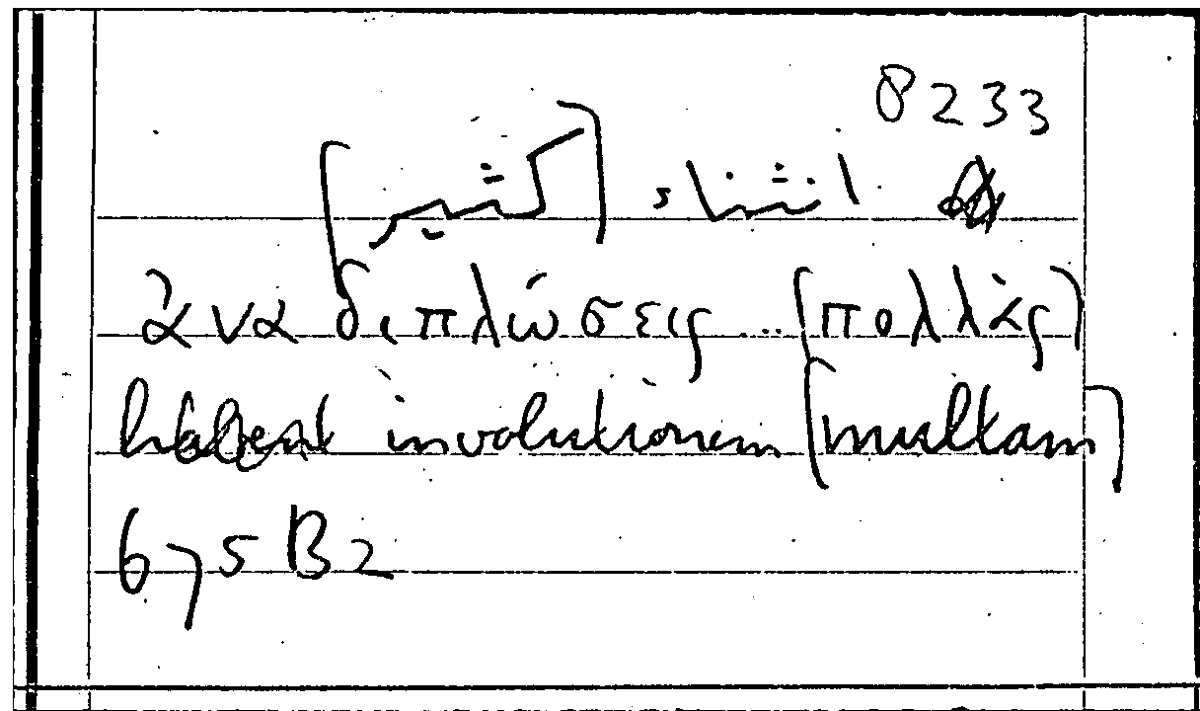 8233
انثناء [كثير]
ἀναδιπλώσεις ... [πολλάς]
habent involutionem [multam]
675 B2